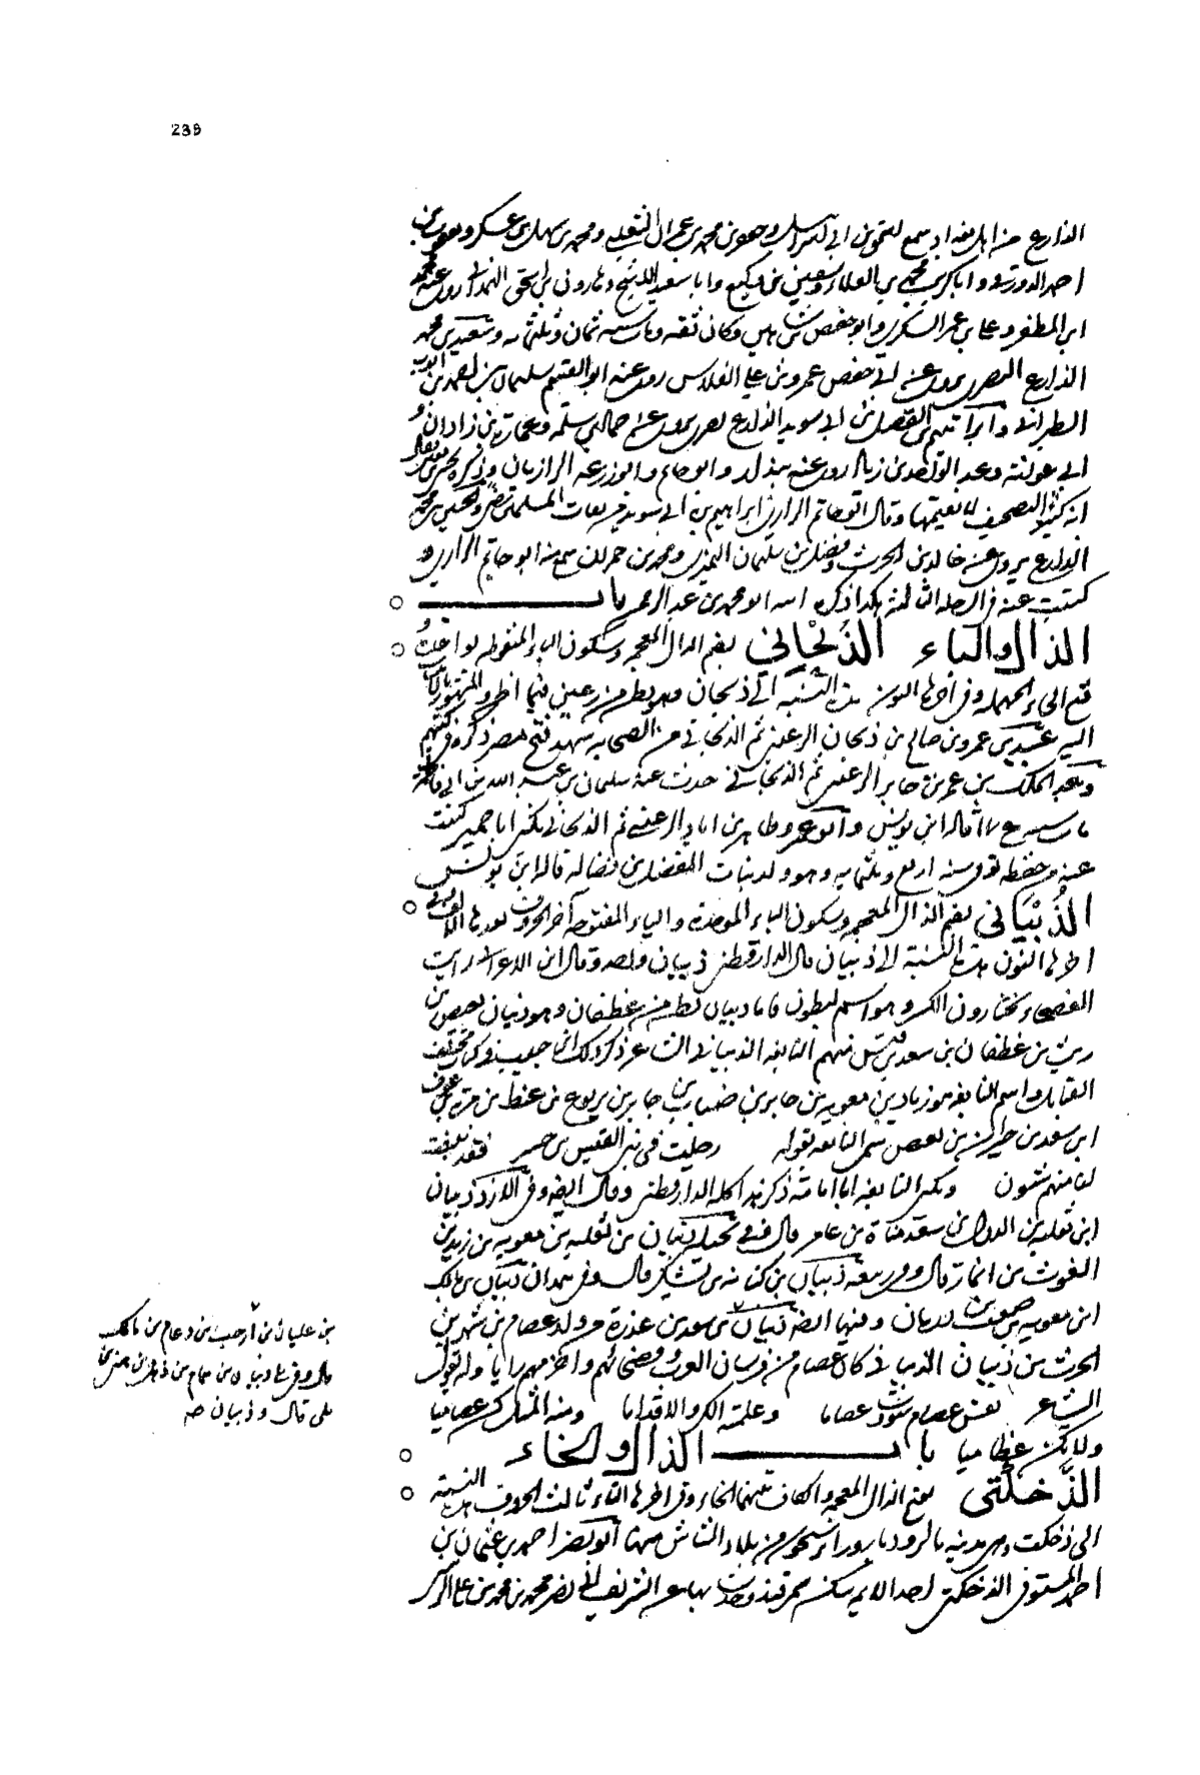 239
الذارع من اهل بغداد سمع يعقوب بن ابى اسرائيل وجعفر بن محمد بن عمران الثعلبى ومحمد بن سهل بن عسكر ويعقوب بن
احمد الدورقى وابا كريب محمد بن العلاء وسفين بن وكيع وابا سعيد الاشج وهارون بن اسحق الهمدانى روى عنه محمد
ابن المظفر وعلى بن عمر السكرى وابو حفص بن شاهين وكان ثقه ومات سنه ثمان وثلثمايه وسعيد بن محمد
الذارع البصرى يروى عن ابى حفص عمرو بن على الفلاس روى عنه ابو القسم سليمان بن احمد بن ايوب
الطبرانى وابراهيم بن الفضل بن ابى سويد الذارع بصرى يروى عن حماد بن سلمه وعمارة بن زاذان و
ابى عوانة وعبد الواحد بن زياد روى عنه بندار وابو حاتم وابو زرعه الرازيان وذكره يحيى بن معين فقال
انه كثير التصحيف لا يقيمها وقال ابو حاتم الرازى ابراهيم بن ابى سويد من ثقات المسلمين رضى ويحيى بن محمد
الذارع يروى عن خالد بن الحرث وفضيل بن سليمان النميرى ومحمد بن حمران سمع منه ابو حاتم الرازى و
كتبت عنه فى الرحله الثالثة هكذا ذكره ابنه ابو محمد بن عبد الرحمن باب
الذال والباء الذبحانى بضم الذال المعجمه وسكون الباء المنقوطه بواحدة و
فتح الحاء المهمله وفى آخرها النون هذه النسبه الى ذبحان وهو بطن من رعين فيما اظن والمشهور بالانتساب
اليه عبيد بن عمرو بن صالح بن ذبحان الرعينى ثم الذبحانى من الصحابه شهد فتح مصر ذكروه فى كتبهم
وعبد الملك بن عمر بن جابر الرعينى ثم الذبحانى حدث عنه سليمان بن عبد الله بن ابى فاطمة
عنه من حفظه توفى سنه اربع وثلثمايه وهو ولد بنات المفضل بن فضاله قاله ابن يونس
الذُبْيَانى بضم الذال المعجمه وسكون الباء الموحدة والياء المفتوحه آخر الحروف بعدها الالف وفى
اخرها النون هذه النسبة الى ذبيان قال الدارقطنى ذبيان واحد وقال ابن الاعرابى رايت
الفصحاء يختارون الكسر وهو اسم لبطون فاما ذبيان بطن من غطفان وهو ذبيان بن بغيض بن
ريث بن غطفان بن سعد بن قيس منهم النابغه الذبيانى الشاعر ذكر ذلك ابن حبيب فى كتاب مختلف
القبايل واسم النابغه هو زياد بن معويه بن جابر بن ضباب بن جابر بن يربوع بن غيظ بن مرة بن عوف
ابن سعد بن ذبيان بن بغيض سمى النابغه بقوله وحلت فى بنى القين بن جسر فقد نبغت
لنا منهم شئون ويكنى النابغه ابا امامة ذكر هذا كله الدارقطنى وقال ايضا وفى الازد ذبيان
ابن ثعلبه بن الدول بن سعد مناة بن غامد قال وفى بجيله ذبيان بن ثعلبه بن معويه بن زيد بن
الغوث بن انمار قال وفى ربيعه ذبيان بن كنانه بن يشكر قال وفى همدان ذبيان بن مالك
ابن معويه بن صعب بن دومان وفيها ايضا ذبيان بن سعد بن عذرة من ولد عصام بن شهر بن
الحرث بن ذبيان الذبيانى كان عصام من فرسان العرب وفصحائهم واحزمهم رايا وله يقول
الشاعر نفس عصام سودت عصاما وعلمته الكر والاقداما ومنه المثل كن عصاميا
ولا تكن عظاميا باب الذال والخاء
الذَّخْكَتى بفتح الذال المعجمه والكاف بينهما الخاء وفى اخرها التاء ثالث الحروف هذه النسبة
الى ذخكت وهى مدينه بالروذبار وراء سيحون من بلاد الشاش منها ابو نصر احمد بن عثمان بن
احمد المستوفى الذخكتى احد الايمه سكن سمرقند وحدث بها عن الشريف ابى نصر محمد بن محمد بن على
بن عليان بن ارحب بن دعام بن مالك
قال وفى ذبيان بن
بلى قال وذبيان صح